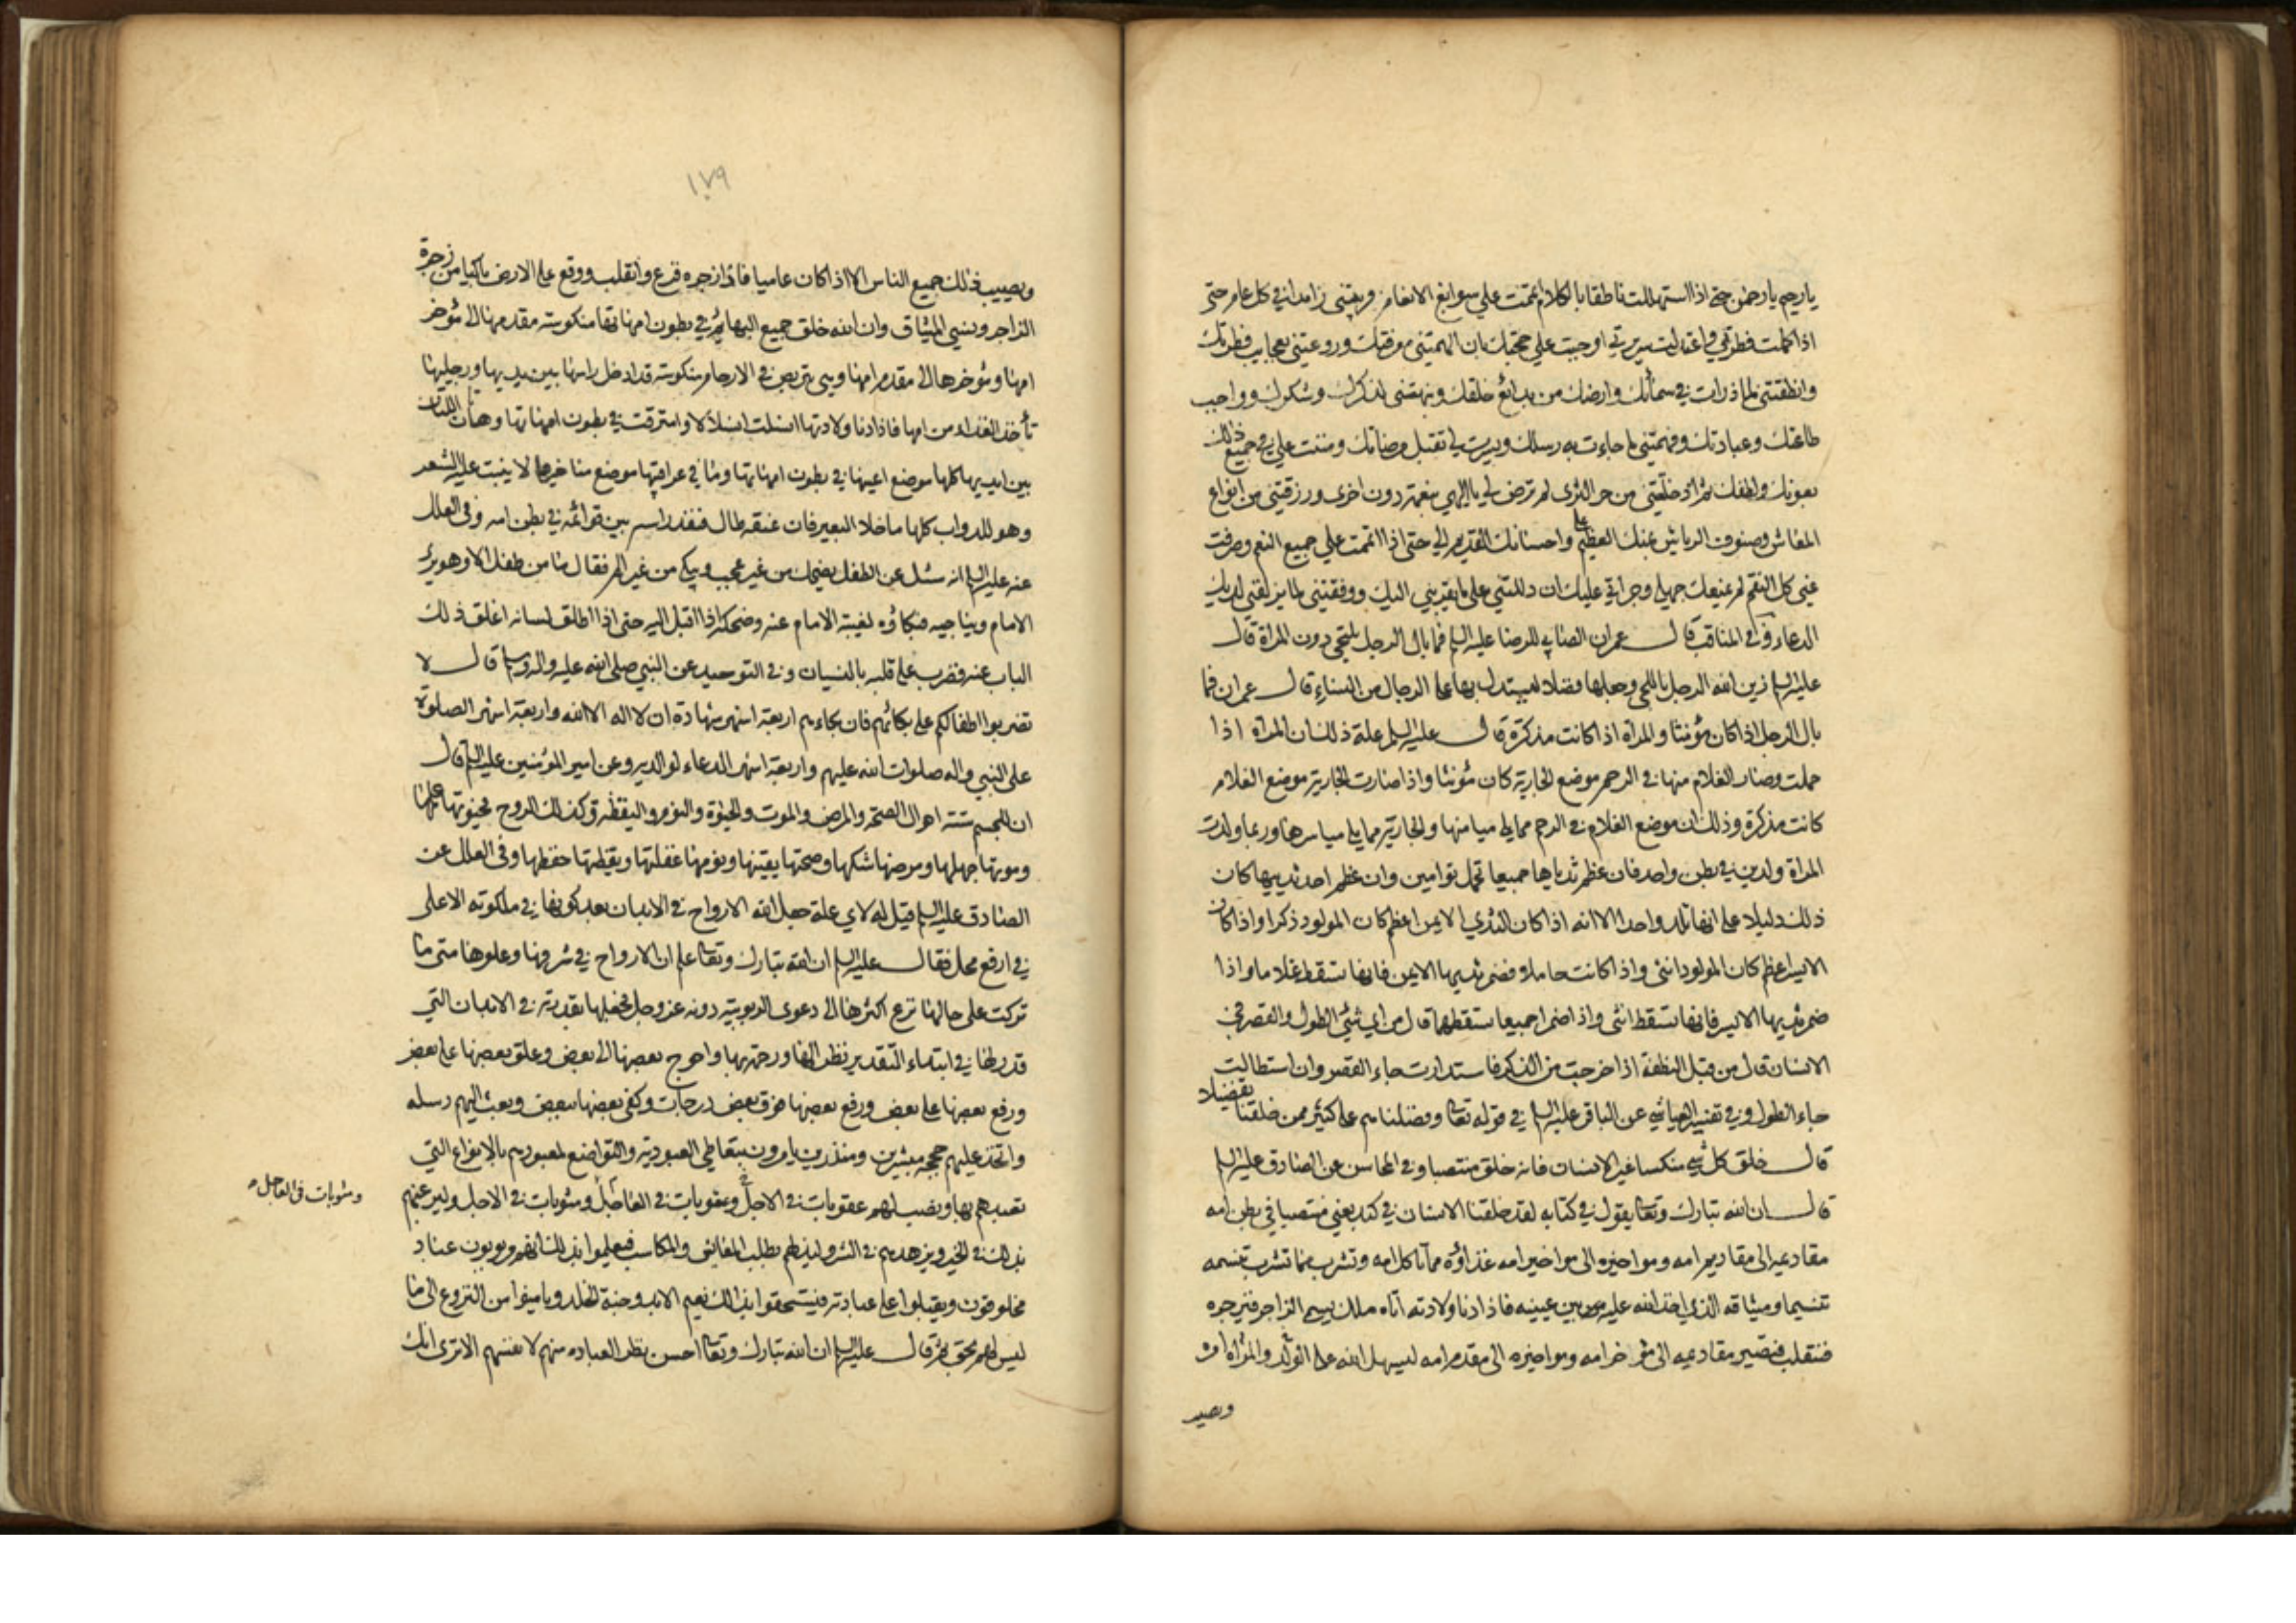 يا رحيم يا رحمن حتى اذا استهللت ناطقا بالكلام اتممت علي سوابغ الانعام وربيتني زايدا في كل عام حتى
اذا كملت فطرتي واعتدلت سريرتي اوجبت علي حجتك بان الهمتني معرفتك وروعتني بعجايب فطرتك
وانطقتني لما ذرات في سمائك وارضك من بدائع خلقك ونبهتني لذكرك وشكرك وواجب
طاعتك وعبادتك وفهمتني ما جاءت به رسلك ويسرت لي تقبل مرضاتك ومننت علي في جميع ذلك
بعونك ولطفك ثم اذ خلقتني من حر الثرى لم ترض لي يا الهي بنعمة دون اخرى ورزقتني من انواع
المعاش وصنوف الرياش بمنك العظيم علي واحسانك القديم الي حتى اذا اتممت علي جميع النعم وصرفت
عني كل النقم لم يمنعك جهلي وجراتي عليك ان دللتني على ما يقربني اليك ووفقتني لما يزلفني لديك
الدعاء وفي المناقب قال عمران الصابي للرضا عليه السلم فما بال الرجل يلتحي دون المراة قال
عليه السلم زين الله الرجل باللحى وجعلها فضلا ليستدل بها على الرجال من النساء قال عمران فما
بال الرجل اذا كان مؤنثا والمراة اذا كانت مذكرة قال عليه السلم علة ذلك ان المراة اذا
حملت وصار الغلام منها في الرحم موضع الجارية كان مؤنثا واذا صارت الجارية موضع الغلام
كانت مذكرة وذلك ان موضع الغلام في الرحم مما يلي ميامنها والجارية مما يلي مياسرها وربما ولدت
المراة ولدين في بطن واحد فان عظم ثدياها جميعا تحمل توامين وان عظم احد ثدييها كان
ذلك دليلا على انها تلد واحدا الا انه اذا كان الثدي الايمن اعظم كان المولود ذكرا واذا كان
الايسر اعظم كان المولود انثى واذا كانت حاملا وضمر ثديها الايمن فانها تسقط غلاما واذا
ضمر ثديها الايسر فانها تسقط انثى واذا ضمرا جميعا تسقطهما قال من اي شئ الطول والقصر في
الانسان قال من قبل النطفة اذا خرجت من الذكر فاستدارت جاء القصر وان استطالت
جاء الطول وفي تفسير العياشي عن الباقر عليه السلم في قوله تعا وفضلناهم على كثير ممن خلقنا تفضيلا
قال خلق كل شئ منكبا غير الانسان فانه خلق منتصبا وفي المحاسن عن الصادق عليه السلم
قال ان الله تبارك وتعا يقول في كتابه لقد خلقنا الانسان في كبد يعني منتصبا في بطن امه
مقاديمه الى مقاديم امه ومواخيره الى مواخير امه غذاؤه مما تاكل امه وتشرب مما تشرب تنسمه
تنسيما وميثاقه الذي اخذ الله عليه بين عينيه فاذا دنا ولادته اتاه ملك يسمى الزاجر فيزجره
فتنقلب فتصير مقاديمه الى مؤخر امه ومواخيره الى مقدم امه ليسهل الله على المراة والولد امره
ويصيب
١٧٩
ويصيب ذلك جميع الناس الا اذا كان عاميا فاذا زجره فزع وانقلب ووقع على الارض باكيا من زجرة
الزاجر ونسي الميثاق وان الله خلق جميع البهائم في بطون امهاتها منكوسة مقدمها الى مؤخر
امها ومؤخرها الى مقدم امها وهي تتربص في الارحام منكوسة قد ادخل راسها بين يديها ورجليها
تأخذ الغذاء من امها فاذا دنا ولادتها انسلت انسلالا وامترقت في بطون امهاتها وهاتان اللتان
بين ايديها كلها موضع اعينها في بطون امهاتها وما في عراقيبها موضع مناخيرها لا ينبت عليه الشعر
وهو للدواب كلها ما خلا البعير فان عنقه طال فنفذ راسه بين قوائمه في بطن امه وفي العلل
عنه عليه السلم انه سئل عن الطفل يضحك من غير عجب ويبكي من غير الم فقال ما من طفل الا وهو يرى
الامام ويناجيه فبكاؤه لغيبة الامام عنه وضحكه اذا اقبل اليه حتى اذا اطلق لسانه اغلق ذلك
الباب عنه وضرب على قلبه بالنسيان وفي التوحيد عن النبي صلى الله عليه واله وسلم قال لا
تضربوا اطفالكم على بكائهم فان بكاءهم اربعة اشهر شهادة ان لا اله الا الله واربعة اشهر الصلوة
على النبي واله صلوات الله عليهم واربعة اشهر الدعاء لوالديه وعن امير المؤمنين عليه السلم قال
ان للجسم ستة احوال الصحة والمرض والموت والحيوة والنوم واليقظة وكذلك الروح فحيوتها علمها
وموتها جهلها ومرضها شكها وصحتها يقينها ونومها غفلتها ويقظتها حفظها وفي العلل عن
الصادق عليه السلم قيل له لاي علة جعل الله الارواح في الابدان بعد كونها في ملكوته الاعلى
في ارفع محل فقال عليه السلم ان الله تبارك وتعا علم ان الارواح في شرفها وعلوها متى ما
تركت على حالها نزع اكثرها الى دعوى الربوبية دونه عز وجل فجعلها بقدرته في الابدان التي
قدر لها في ابتداء التقدير نظرا لها ورحمة بها واحوج بعضها الى بعض وعلق بعضها على بعض
ورفع بعضها على بعض ورفع بعضها فوق بعض درجات وكفى بعضها ببعض وبعث اليهم رسله
واتخذ عليهم حججه مبشرين ومنذرين يامرون بتعاطي العبودية والتواضع لمعبودهم بالانواع التي
تعبدهم بها ونصب لهم عقوبات في الاجل وعقوبات في العاجل ومثوبات في الاجل وليرغبهم
ومثوبات في العاجل
بذلك في الخير ويزهدهم في الشر وليذلهم بطلب المعاش والمكاسب فيعلموا بذلك انهم مربوبون عباد
مخلوقون ويقبلوا على عبادته فيستحقوا بذلك نعيم الابد وجنة الخلد ويامنوا من النزوع الى ما
ليس لهم بحق ثم قال عليه السلم ان الله تبارك وتعا احسن نظرا لعباده منهم لانفسهم الا ترى انك